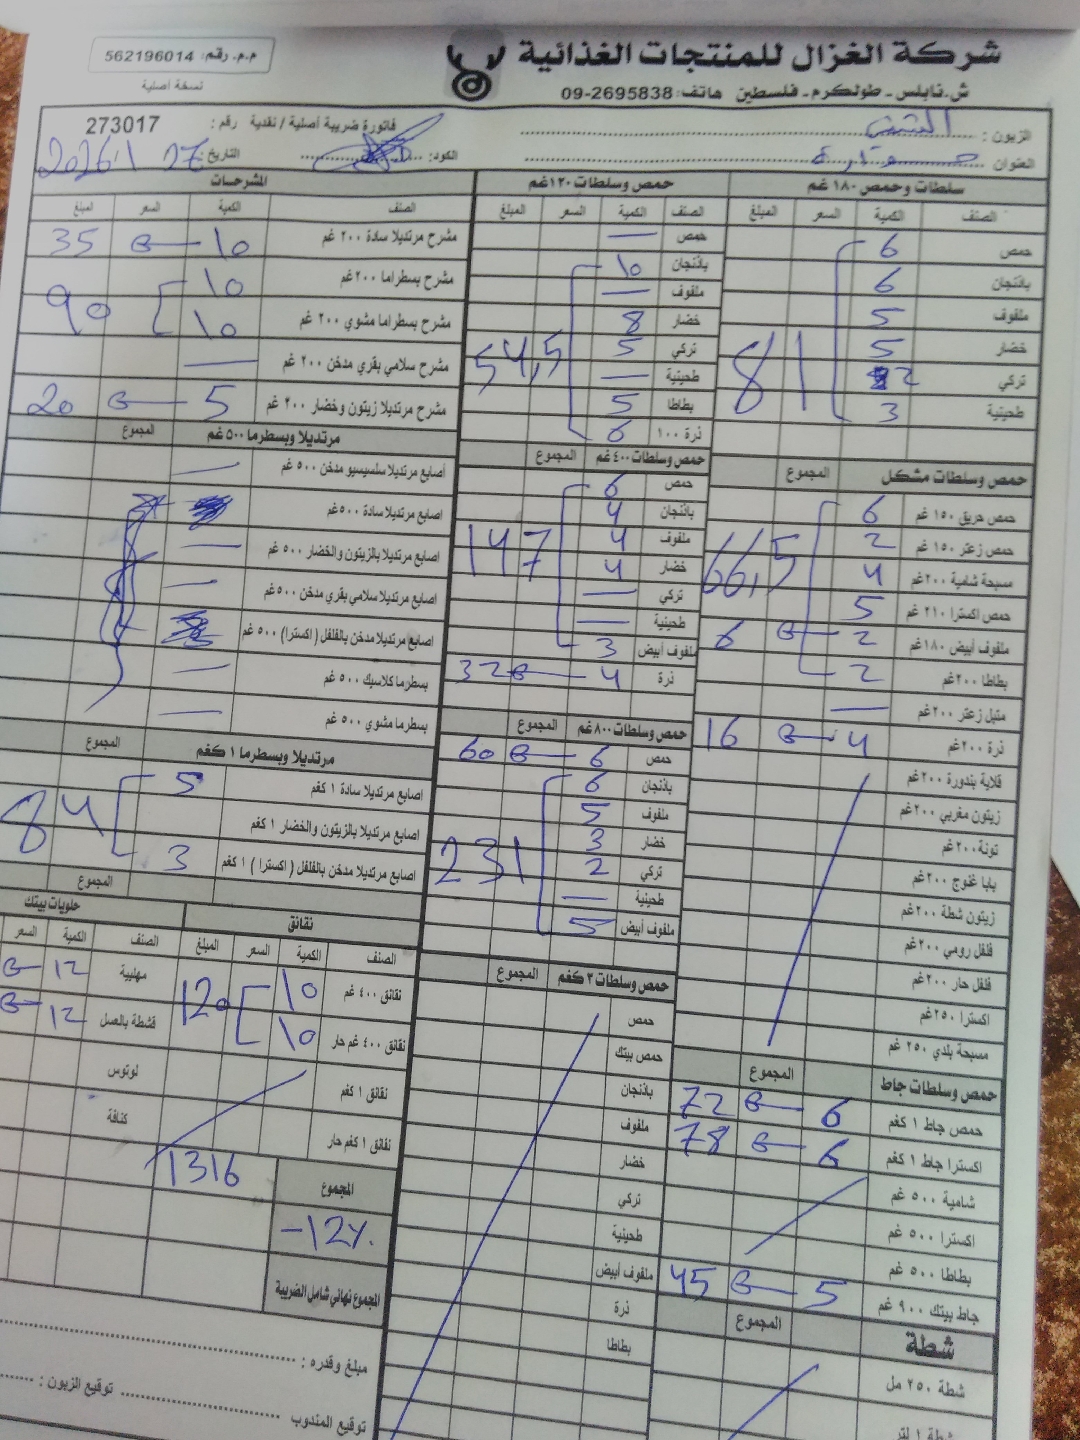 شركة الغزال للمنتجات الغذائية
ش.نابلس - طولكرم - فلسطين هاتف: 2695838-09
م.م. رقم: 562196014
نسخة أصلية
الزبون :
العنوان
فاتورة ضريبة أصلية / نقدية رقم : 273017
الكود:
التاريخ: 27 1 2026
سلطات وحمص ١٨٠ غم
الصنف الكمية السعر المبلغ
حمص 6
باذنجان 6
ملفوف 5
خضار 5
تركي 2
طحينية 3
81
حمص وسلطات مشكل المجموع
حمص حريق ١٥٠ غم 6
حمص زعتر ١٥٠ غم 2
مسبحة شامية ٢٠٠غم 4
حمص اكسترا ٢١٠ غم 5
ملفوف أبيض ١٨٠غم 2 6
بطاطا ٢٠٠غم 2
66,5
متبل زعتر ٢٠٠غم —
ذرة ٢٠٠غم 4 16
قلاية بندورة ٢٠٠غم
زيتون مغربي ٢٠٠غم
تونة ٢٠٠غم
بابا غنوج ٢٠٠غم
زيتون شطة ٢٠٠غم
فلفل رومي ٢٠٠غم
فلفل حار ٢٠٠غم
اكسترا ٢٥٠غم
مسبحة بلدي ٢٥٠ غم
حمص وسلطات جاط المجموع
حمص جاط ١ كغم 6 72
اكسترا جاط ١ كغم 6 78
شامية ٥٠٠ غم
اكسترا ٥٠٠ غم
بطاطا ٥٠٠ غم
جاط بيتك ٩٠٠ غم 5 45
شطة المجموع
شطة ٢٥٠ مل
شطة ١ لتر
حمص وسلطات ١٢٠غم
الصنف الكمية السعر المبلغ
حمص —
باذنجان 10
ملفوف —
خضار 8
تركي 5
طحينية —
بطاطا 5
ذرة ١٠٠ 6
54,5
حمص وسلطات ٤٠٠ غم المجموع
حمص 6
باذنجان 4
ملفوف 4
خضار 4
تركي —
طحينية —
ملفوف أبيض 3
147
ذرة 4 32
حمص وسلطات ٨٠٠ غم المجموع
حمص 6 60
باذنجان 6
ملفوف 5
خضار 3
تركي 2
طحينية —
ملفوف أبيض 5
231
حمص وسلطات ٣ كغم المجموع
حمص
حمص بيتك
باذنجان
ملفوف
خضار
تركي
طحينية
ملفوف أبيض
ذرة
بطاطا
المشرحات
الصنف الكمية السعر المبلغ
مشرح مرتديلا سادة ٢٠٠ غم 10 35
مشرح بسطراما ٢٠٠غم 10
مشرح بسطراما مشوي ٢٠٠ غم 10
90
مشرح سلامي بقري مدخن ٢٠٠ غم —
مشرح مرتديلا زيتون وخضار ٢٠٠ غم 5 20
مرتديلا وبسطرما ٥٠٠ غم المجموع
اصابع مرتديلا سلسيسيو مدخن ٥٠٠ غم —
اصابع مرتديلا سادة ٥٠٠غم
اصابع مرتديلا بالزيتون والخضار ٥٠٠ غم —
اصابع مرتديلا سلامي بقري مدخن ٥٠٠غم —
اصابع مرتديلا مدخن بالفلفل ( اكسترا) ٥٠٠ غم
بسطرما كلاسيك ٥٠٠ غم —
بسطرما مشوي ٥٠٠ غم —
مرتديلا وبسطرما ١ كغم المجموع
اصابع مرتديلا سادة ١ كغم 5
اصابع مرتديلا بالزيتون والخضار ١ كغم
اصابع مرتديلا مدخن بالفلفل ( اكسترا ) ١ كغم 3
84
المجموع
نقانق
الصنف الكمية السعر المبلغ
نقانق ٤٠٠ غم 10
نقانق ٤٠٠ غم حار 10
120
نقانق ١ كغم
نقانق ١ كغم حار
حلويات بيتك
الصنف الكمية السعر
مهلبية 12
قشطة بالعسل 12
لوتوس
كنافة
المجموع 1316
-12%
المجموع نهائي شامل الضريبة
مبلغ وقدره :
توقيع المندوب توقيع الزبون :